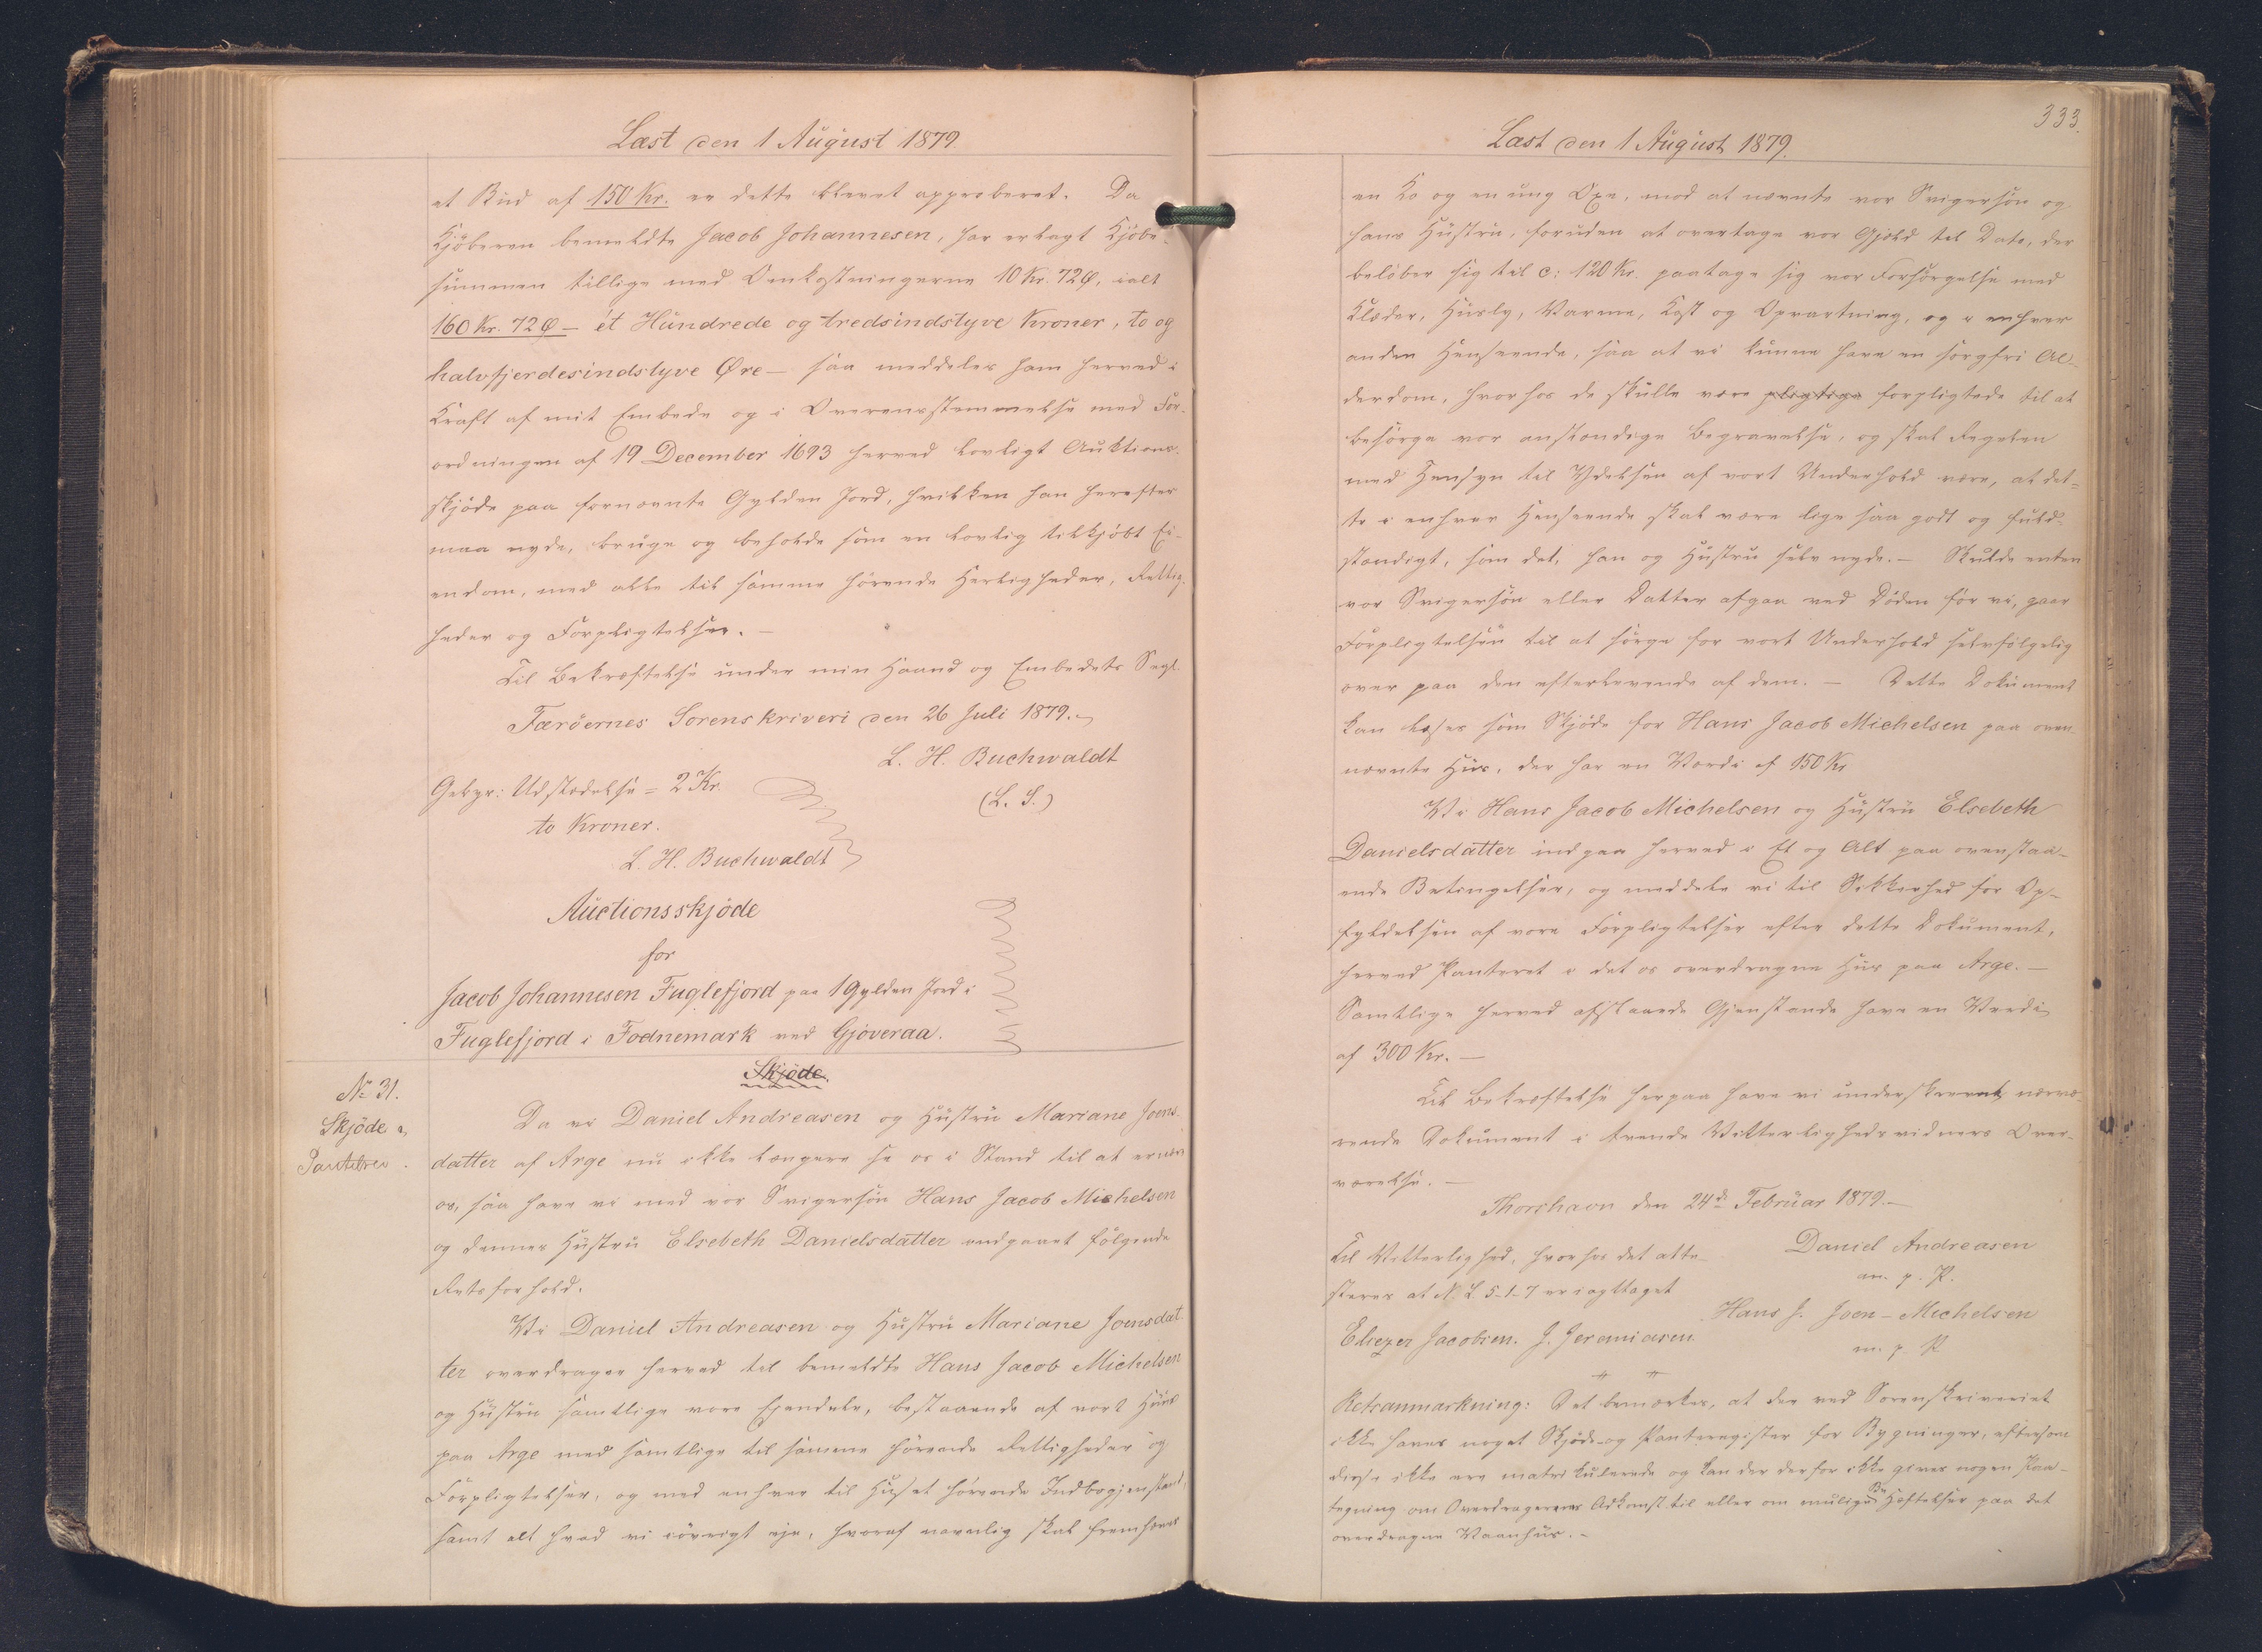 Læst den 1 August 1879.
et Bud af 150 Kr. er dette blevet approberet. Da
Kjöberen bemeldte Jacob Johannesen, har erlagt Kjöbe-
summen tillige med Omkostningerne 10 Kr. 72 Ø, ialt
160 Kr. 72 Ø – ét Hundrede og tredsindstyve Kroner, to og
halvfjerdesindstyve Øre – saa meddeles ham herved i
Kraft af mit Embede og i Overensstemmelse med For-
ordningen af 19 December 1693 herved lovligt Auktions-
skjöde paa fornævnte Gylden Jord, hvilken han herefter
maa nyde, bruge og beholde som en lovlig tilkjöbt Ei-
endom, med alle til samme hörende Herligheder, Rettig-
heder og Forpligtelser. –
Til Bekræftelse under min Haand og Embedets Segl.
Færöernes Sorenskriveri den 26 Juli 1879.
L. H. Buchwaldt
(L. S.)
Gebyr: Udstedelse = 2 Kr.
to Kroner.
L. H. Buchwaldt
Auctionsskjöde
for
Jacob Johannesen Fuglefjord paa 1 Gylden Jord i
Fuglefjord i Fodnemark ved Gjöveraa.
No 31.
Skjöde &
Pantebrev.
Skjöde.
Da vi Daniel Andreasen og Hustru Mariane Joens-
datter af Arge nu ikke længere se os i Stand til at ernære
os, saa have vi med vor Svigersön Hans Jacob Michelsen
og dennes Hustru Elsebeth Danielsdatter indgaaet fölgende
Retsforhold.
Vi Daniel Andreasen og Hustru Mariane Joensdat-
ter overdrager herved til bemeldte Hans Jacob Michelsen
og Hustru samtlige vore Ejendele, bestaaende af vort Huus
paa Arge med samtlige til samme hörende Rettigheder og
Forpligtelser, og med enhver til Huset hörende Indbogjenstand,
samt alt hvad vi iövrigt eje, hvoraf navnlig skal fremhæves
333.
Læst den 1 August 1879.
en Ko og en ung Oxe, mod at nævnte vor Svigersön og
hans Hustru, foruden at overtage vor Gjæld til Dato, der
belöber sig til c: 120 Kr. paatage sig vor Forsörgelse med
Klæder, Husly, Varme, Kost og Opvartning, og i enhver
anden Henseende, saa at vi kunne have en sorgfri Al-
derdom, hvorhos de skulle være pligtige forpligtede til at
besörge vor anstændige Begravelse, og skal Regelen
med Hensyn til Ydelsen af vort Underhold være, at det-
te i enhver Henseende skal være lige saa godt og fuld-
stændigt, som det, han og Hustru selv nyde. – Skulde enten
vor Svigersön eller Datter afgaa ved Döden för vi, gaar
Forpligtelsen til at sörge for vort Underhold selvfölgelig
over paa den efterlevende af dem. – Dette Dokument
kan læses som Skjöde for Hans Jacob Michelsen paa oven-
nævnte Hus, der har en Værdi af 150 Kr
Vi Hans Jacob Michelsen og Hustru Elsebeth
Danielsdatter indgaa herved i Et og Alt paa ovenstaa-
ende Betingelser, og meddele vi til Sikkerhed for Op-
fyldelsen af vore Forpligtelser efter dette Dokument,
herved Panteret i det os overdragne Hus paa Arge. –
Samtlige herved afstaaede Gjenstande have en Værdi
af 300 Kr. –
Til Bekræftelse herpaa have vi underskrevet nærvæ-
rende Dokument i tvende Vitterlighedsvidners Over-
værelse. –
Thorshavn den 24de Februar 1879. –
Til Vitterlighed, hvorhos det atte-
steres at N. L. 5-1-7 er iagttaget
Eliezer Jacobsen. J. Jeremiasen
Daniel Andreasen
m. p. P.
Hans J. Joen-Michelsen
m. p. P.
Retsanmærkning: Det bemærkes, at der ved Sorenskriveriet
ikke haves noget Skjöde- og Panteregister for Bygninger, eftersom
disse ikke ere matrikulerede og kan der derfor ikke gives nogen Paa-
tegning om Overdragerens Adkomst til eller om mulige Hæftelser paa det
overdragne Vaanhus. –